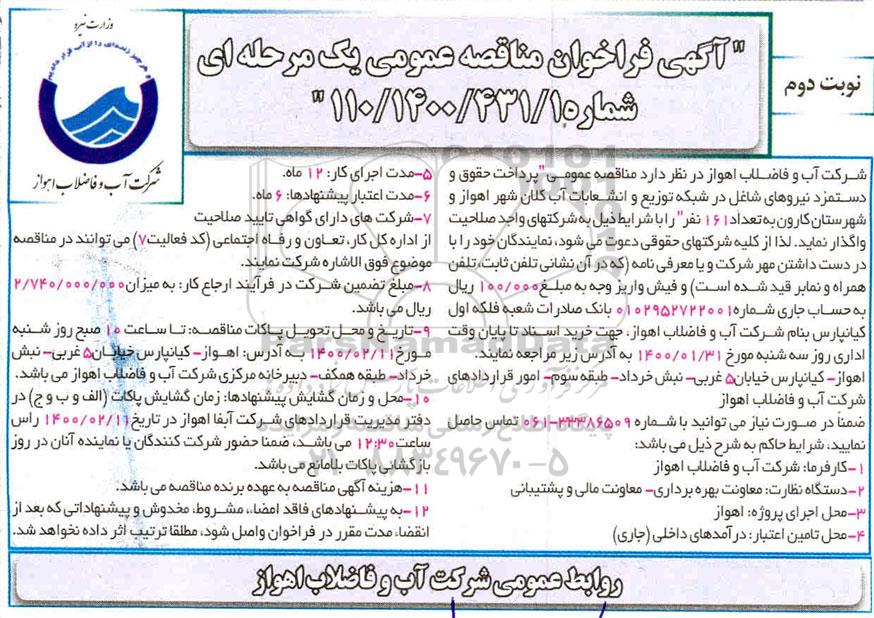 وزارت نیرو
شرکت آب و فاضلاب اهواز
"آگهی فراخوان مناقصه عمومی یک مرحله ای
شماره ۱۱۰/۱۴۰۰/۴۳۱/۱"
نوبت دوم
شرکت آب و فاضلاب اهواز در نظر دارد مناقصه عمومی "پرداخت حقوق و
دستمزد نیروهای شاغل در شبکه توزیع و انشعابات آب کلان شهر اهواز و
شهرستان کارون به تعداد ۱۶۱ نفر" را با شرایط ذیل به شرکتهای واحد صلاحیت
واگذار نماید. لذا از کلیه شرکتهای حقوقی دعوت می شود، نمایندگان خود را با
در دست داشتن مهر شرکت و یا معرفی نامه (که در آن نشانی تلفن ثابت، تلفن
همراه و نمابر قید شده است) و فیش واریز وجه به مبلغ ۱۰۰/۰۰۰ ریال
به حساب جاری شماره ۰۱۰۲۹۵۲۷۲۲۰۰۱ بانک صادرات شعبه فلکه اول
کیانپارس بنام شرکت آب و فاضلاب اهواز، جهت خرید اسناد تا پایان وقت
اداری روز سه شنبه مورخ ۱۴۰۰/۰۱/۳۱ به آدرس زیر مراجعه نمایند.
اهواز- کیانپارس خیابان ۵ غربی- نبش خرداد- طبقه سوم- امور قراردادهای
شرکت آب و فاضلاب اهواز
ضمنا در صورت نیاز می توانید با شماره ۳۳۳۸۶۵۰۹-۰۶۱ تماس حاصل
نمایید، شرایط حاکم به شرح ذیل می باشد:
۱-کارفرما: شرکت آب و فاضلاب اهواز
۲-دستگاه نظارت: معاونت بهره برداری- معاونت مالی و پشتیبانی
۳-محل اجرای پروژه: اهواز
۴-محل تامین اعتبار: درآمدهای داخلی (جاری)
۵-مدت اجرای کار: ۱۲ ماه.
۶-مدت اعتبار پیشنهادها: ۶ ماه.
۷-شرکت های دارای گواهی تایید صلاحیت
از اداره کل کار، تعاون و رفاه اجتماعی (کد فعالیت ۷) می توانند در مناقصه
موضوع فوق الاشاره شرکت نمایند.
۸-مبلغ تضمین شرکت در فرآیند ارجاع کار: به میزان ۲/۷۴۰/۰۰۰/۰۰۰
ریال می باشد.
۹-تاریخ و محل تحویل پاکات مناقصه: تا ساعت ۱۰ صبح روز شنبه
مورخ ۱۴۰۰/۰۲/۱۱ به آدرس: اهواز- کیانپارس خیابان ۵ غربی- نبش
خرداد- طبقه همکف- دبیرخانه مرکزی شرکت آب و فاضلاب اهواز می باشد.
۱۰-محل و زمان گشایش پیشنهادها: زمان گشایش پاکات (الف و ب و ج) در
دفتر مدیریت قراردادهای شرکت آبفا اهواز در تاریخ ۱۴۰۰/۰۲/۱۱ راس
ساعت ۱۲:۳۰ می باشد، ضمنا حضور شرکت کنندگان یا نماینده آنان در روز
بازگشایی پاکات بلامانع می باشد.
۱۱-هزینه آگهی مناقصه به عهده برنده مناقصه می باشد.
۱۲-به پیشنهادهای فاقد امضا، مشروط، مخدوش و پیشنهاداتی که بعد از
انقضاء مدت مقرر در فراخوان واصل شود، مطلقا ترتیب اثر داده نخواهد شد.
روابط عمومی شرکت آب و فاضلاب اهواز
ParsNamadData
۰۲۱-۸۸۳۴۹۶۷۰-۵